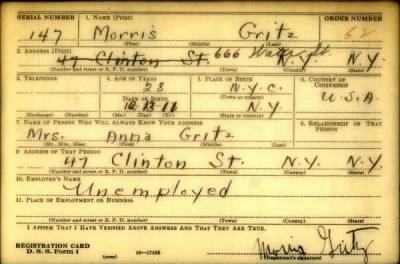 SERIAL NUMBER 1. NAME (Print) ORDER NUMBER
147 Morris Gritz 62
(First) (Middle) (Last)
2. ADDRESS (Print)
47 Clinton St. 666 N.Y. N.Y.
(Number and street or R. F. D. number) (Town) (County) (State)
3. TELEPHONE 4. AGE IN YEARS 5. PLACE OF BIRTH 6. COUNTRY OF CITIZENSHIP
28 N.Y.C.
DATE OF BIRTH (Town or county)
N.Y. U.S.A.
(Exchange) (Number) (Mo.) (Day) (Yr.) (State or country)
7. NAME OF PERSON WHO WILL ALWAYS KNOW YOUR ADDRESS 8. RELATIONSHIP OF THAT PERSON
Mrs. Anna Gritz
(Mr., Mrs., Miss) (First) (Middle) (Last)
9. ADDRESS OF THAT PERSON
47 Clinton St. N.Y. N.Y.
(Number and street or R. F. D. number) (Town) (County) (State)
10. EMPLOYER'S NAME
Unemployed
11. PLACE OF EMPLOYMENT OR BUSINESS
(Number and street or R. F. D. number) (Town) (County) (State)
I AFFIRM THAT I HAVE VERIFIED ABOVE ANSWERS AND THAT THEY ARE TRUE.
REGISTRATION CARD
D. S. S. Form 1 (over) Morris Gritz
(Registrant's signature)